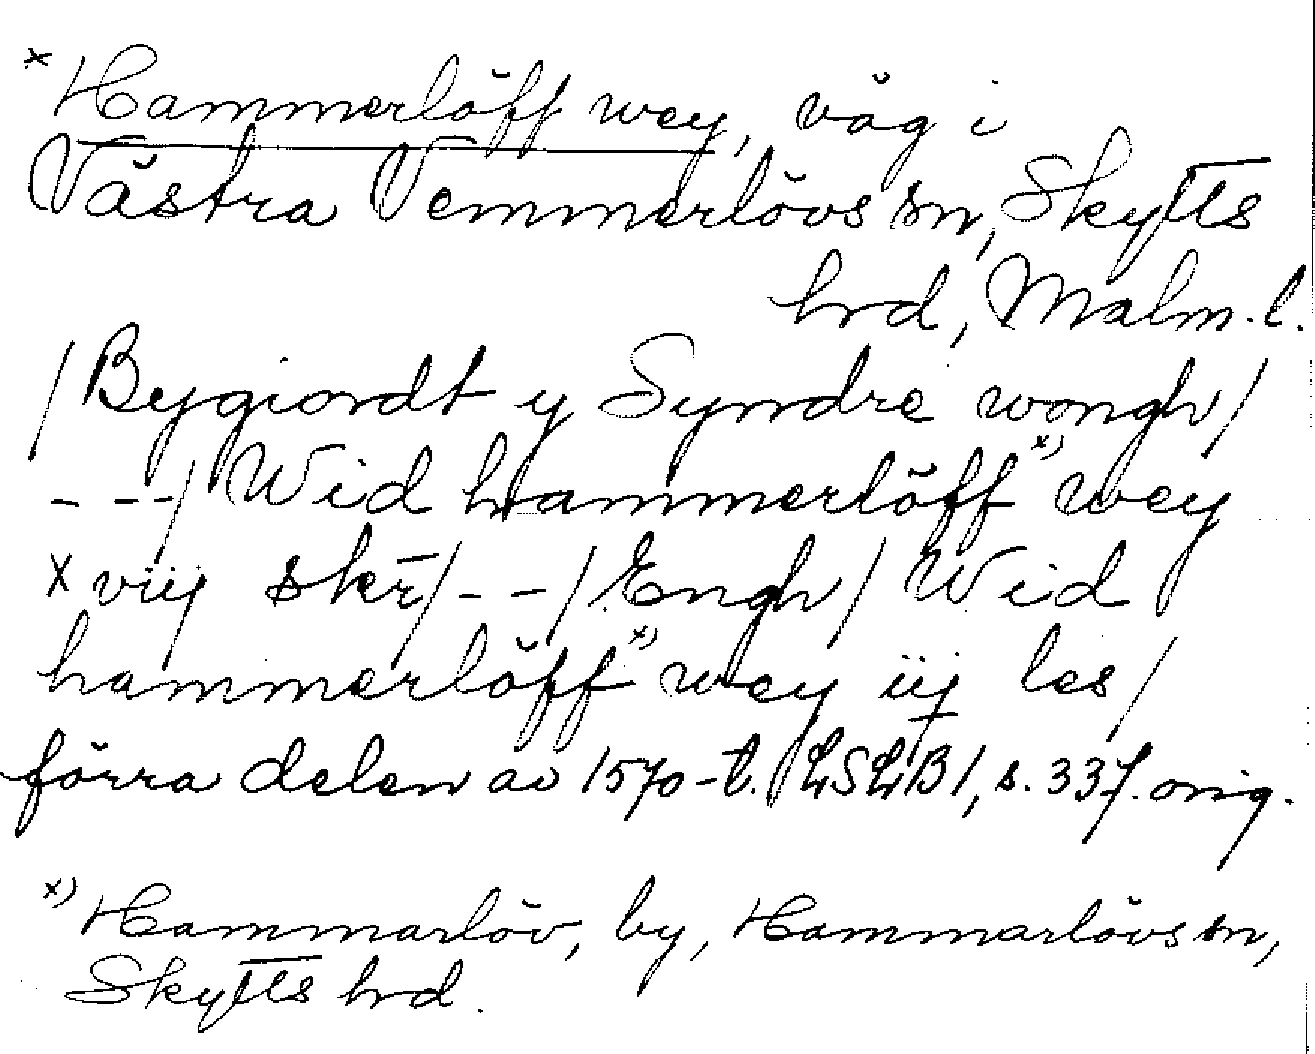 * Hammerlöff wey, väg i
Västra Vemmerlövs sn, Skytts
hrd, Malm. l.
/ Bygiordt y Syndre wongh /
- - - / Wid hammerlöff x) wey
x viij skr̄ / - - / Engh / Wid
hammerlöff x) wey iij les /
förra delen av 1570-t. LSLB 1, s. 337. orig.
x) Hammarlöv, by, Hammarlövs sn,
Skytts hrd.